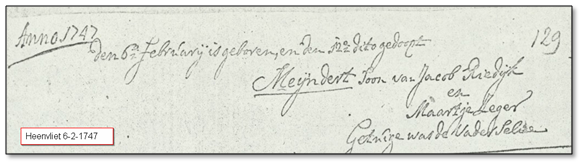 Anno 1747
129
den 6en February is geboren, en den 12en dito gedoopt
Meyndert Soon van Jacob Riedyk
en
Maartje Leger
Getuige was de Vader Selve
Heenvliet 6-2-1747